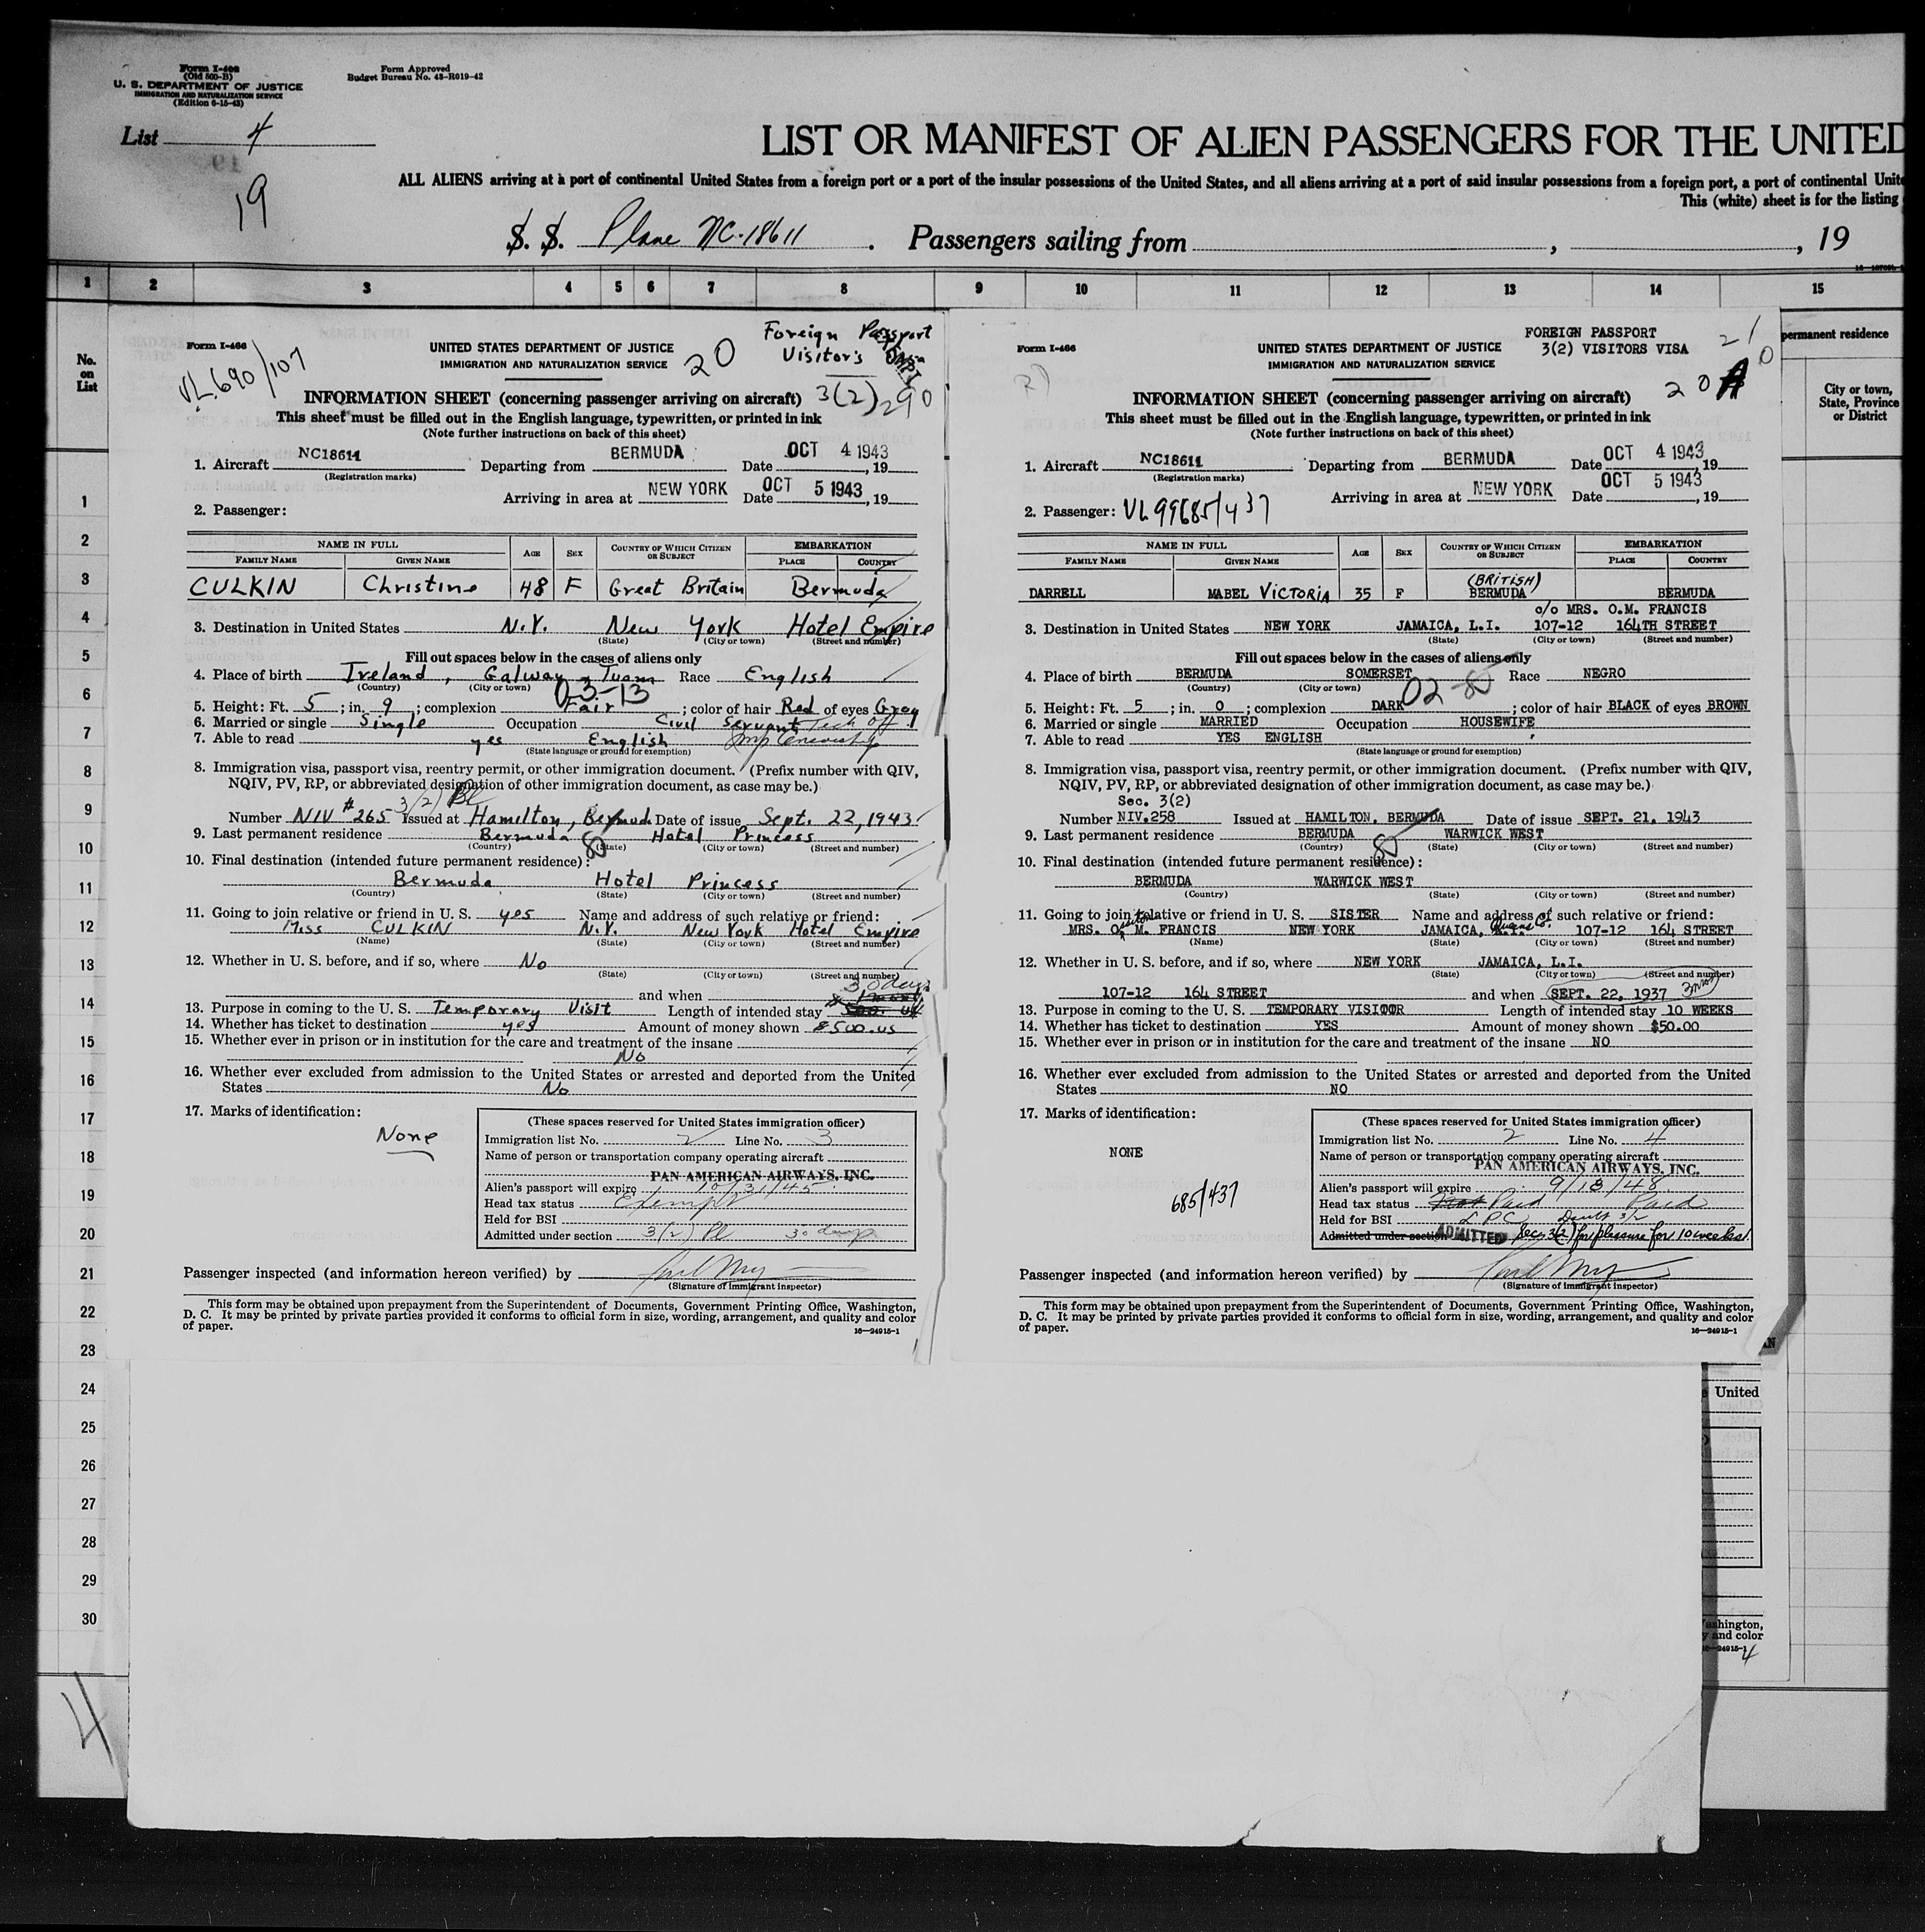 Form I-466
(Old 500-B)
U. S. DEPARTMENT OF JUSTICE
IMMIGRATION AND NATURALIZATION SERVICE
(Edition 6-15-43)
Form Approved
Budget Bureau No. 43-R019-42
List 4
19
LIST OR MANIFEST OF ALIEN PASSENGERS FOR THE UNITED
ALL ALIENS arriving at a port of continental United States from a foreign port or a port of the insular possessions of the United States, and all aliens arriving at a port of said insular possessions from a foreign port, a port of continental Unite
This (white) sheet is for the listing
S. S. Plane NC-18611 . Passengers sailing from , , 19
1 2 3 4 5 6 7 8 9 10 11 12 13 14 15
No. on List
permanent residence
City or town, State, Province or District
1
2
3
4
5
6
7
8
9
10
11
12
13
14
15
16
17
18
19
20
21
22
23
24
25
26
27
28
29
30
4
Form I-466
VL.690/107
UNITED STATES DEPARTMENT OF JUSTICE
IMMIGRATION AND NATURALIZATION SERVICE
20
Foreign Passport
Visitor's
3(2) 290
INFORMATION SHEET (concerning passenger arriving on aircraft)
This sheet must be filled out in the English language, typewritten, or printed in ink
(Note further instructions on back of this sheet)
1. Aircraft NC18611 Departing from BERMUDA Date OCT 4 1943, 19
(Registration marks)
Arriving in area at NEW YORK Date OCT 5 1943, 19
2. Passenger:
NAME IN FULL AGE SEX COUNTRY OF WHICH CITIZEN OR SUBJECT EMBARKATION
FAMILY NAME GIVEN NAME PLACE COUNTRY
CULKIN Christine 48 F Great Britain Bermuda
3. Destination in United States N.Y. New York Hotel Empire
(State) (City or town) (Street and number)
Fill out spaces below in the cases of aliens only
4. Place of birth Ireland, Galway, Tuam Race English
(Country) (City or town) 03-13
5. Height: Ft. 5; in. 9; complexion Fair; color of hair Red of eyes Grey
6. Married or single Single Occupation Civil Servant Tech off
7. Able to read yes English Imp Censorship
(State language or ground for exemption)
8. Immigration visa, passport visa, reentry permit, or other immigration document. (Prefix number with QIV,
NQIV, PV, RP, or abbreviated designation of other immigration document, as case may be.)
3(2) Pl
Number NIV #265 Issued at Hamilton, Bermuda Date of issue Sept. 22, 1943
9. Last permanent residence Bermuda Hotel Princess
(Country) (State) (City or town) (Street and number)
10. Final destination (intended future permanent residence):
Bermuda Hotel Princess
(Country) (State) (City or town) (Street and number)
11. Going to join relative or friend in U. S. yes Name and address of such relative or friend:
Miss CULKIN N.Y. New York Hotel Empire
(Name) (State) (City or town) (Street and number)
12. Whether in U. S. before, and if so, where No
(State) (City or town) (Street and number)
and when 30 days
13. Purpose in coming to the U. S. Temporary Visit Length of intended stay
14. Whether has ticket to destination yes Amount of money shown $500.us
15. Whether ever in prison or in institution for the care and treatment of the insane
No
16. Whether ever excluded from admission to the United States or arrested and deported from the United
States No
17. Marks of identification:
None
(These spaces reserved for United States immigration officer)
Immigration list No. 2 Line No. 3
Name of person or transportation company operating aircraft
PAN AMERICAN AIRWAYS, INC.
Alien's passport will expire 10/31/45
Head tax status Exempt
Held for BSI
Admitted under section 3(2) Pl 30 days
Passenger inspected (and information hereon verified) by
(Signature of immigrant inspector)
This form may be obtained upon prepayment from the Superintendent of Documents, Government Printing Office, Washington,
D. C. It may be printed by private parties provided it conforms to official form in size, wording, arrangement, and quality and color
of paper.
16—24915-1
Form I-466
UNITED STATES DEPARTMENT OF JUSTICE
IMMIGRATION AND NATURALIZATION SERVICE
FOREIGN PASSPORT
3(2) VISITORS VISA
21
20 A
INFORMATION SHEET (concerning passenger arriving on aircraft)
This sheet must be filled out in the English language, typewritten, or printed in ink
(Note further instructions on back of this sheet)
1. Aircraft NC18611 Departing from BERMUDA Date OCT 4 1943, 19
(Registration marks)
Arriving in area at NEW YORK Date OCT 5 1943, 19
2. Passenger: VL99685/437
NAME IN FULL AGE SEX COUNTRY OF WHICH CITIZEN OR SUBJECT EMBARKATION
FAMILY NAME GIVEN NAME PLACE COUNTRY
DARRELL MABEL VICTORIA 35 F (BRITISH) BERMUDA BERMUDA
c/o MRS. O.M. FRANCIS
3. Destination in United States NEW YORK JAMAICA, L.I. 107-12 164TH STREET
(State) (City or town) (Street and number)
Fill out spaces below in the cases of aliens only
4. Place of birth BERMUDA SOMERSET Race NEGRO
(Country) (City or town) 02
5. Height: Ft. 5; in. 0; complexion DARK; color of hair BLACK of eyes BROWN
6. Married or single MARRIED Occupation HOUSEWIFE
7. Able to read YES ENGLISH
(State language or ground for exemption)
8. Immigration visa, passport visa, reentry permit, or other immigration document. (Prefix number with QIV,
NQIV, PV, RP, or abbreviated designation of other immigration document, as case may be.)
Sec. 3(2)
Number NIV.258 Issued at HAMILTON, BERMUDA Date of issue SEPT. 21, 1943
9. Last permanent residence BERMUDA WARWICK WEST
(Country) (State) (City or town) (Street and number)
10. Final destination (intended future permanent residence):
BERMUDA WARWICK WEST
(Country) (State) (City or town) (Street and number)
11. Going to join relative or friend in U. S. SISTER Name and address of such relative or friend:
MRS. O. M. FRANCIS NEW YORK JAMAICA, L.I. Queens Co. 107-12 164 STREET
(Name) (State) (City or town) (Street and number)
12. Whether in U. S. before, and if so, where NEW YORK JAMAICA, L.I.
(State) (City or town) (Street and number)
107-12 164 STREET and when SEPT. 22, 1937 3 mos
13. Purpose in coming to the U. S. TEMPORARY VISITOR Length of intended stay 10 WEEKS
14. Whether has ticket to destination YES Amount of money shown $50.00
15. Whether ever in prison or in institution for the care and treatment of the insane NO
16. Whether ever excluded from admission to the United States or arrested and deported from the United
States NO
17. Marks of identification:
NONE
685/437
(These spaces reserved for United States immigration officer)
Immigration list No. 2 Line No. 4
Name of person or transportation company operating aircraft
PAN AMERICAN AIRWAYS, INC.
Alien's passport will expire 9/18/48
Head tax status Paid Paid
Held for BSI LPC
Admitted under section ADMITTED Sec 3(2) for pleasure for 10 weeks
Passenger inspected (and information hereon verified) by
(Signature of immigrant inspector)
This form may be obtained upon prepayment from the Superintendent of Documents, Government Printing Office, Washington,
D. C. It may be printed by private parties provided it conforms to official form in size, wording, arrangement, and quality and color
of paper.
16—24915-1
United
ashington,
y and color
16—24915-1
4